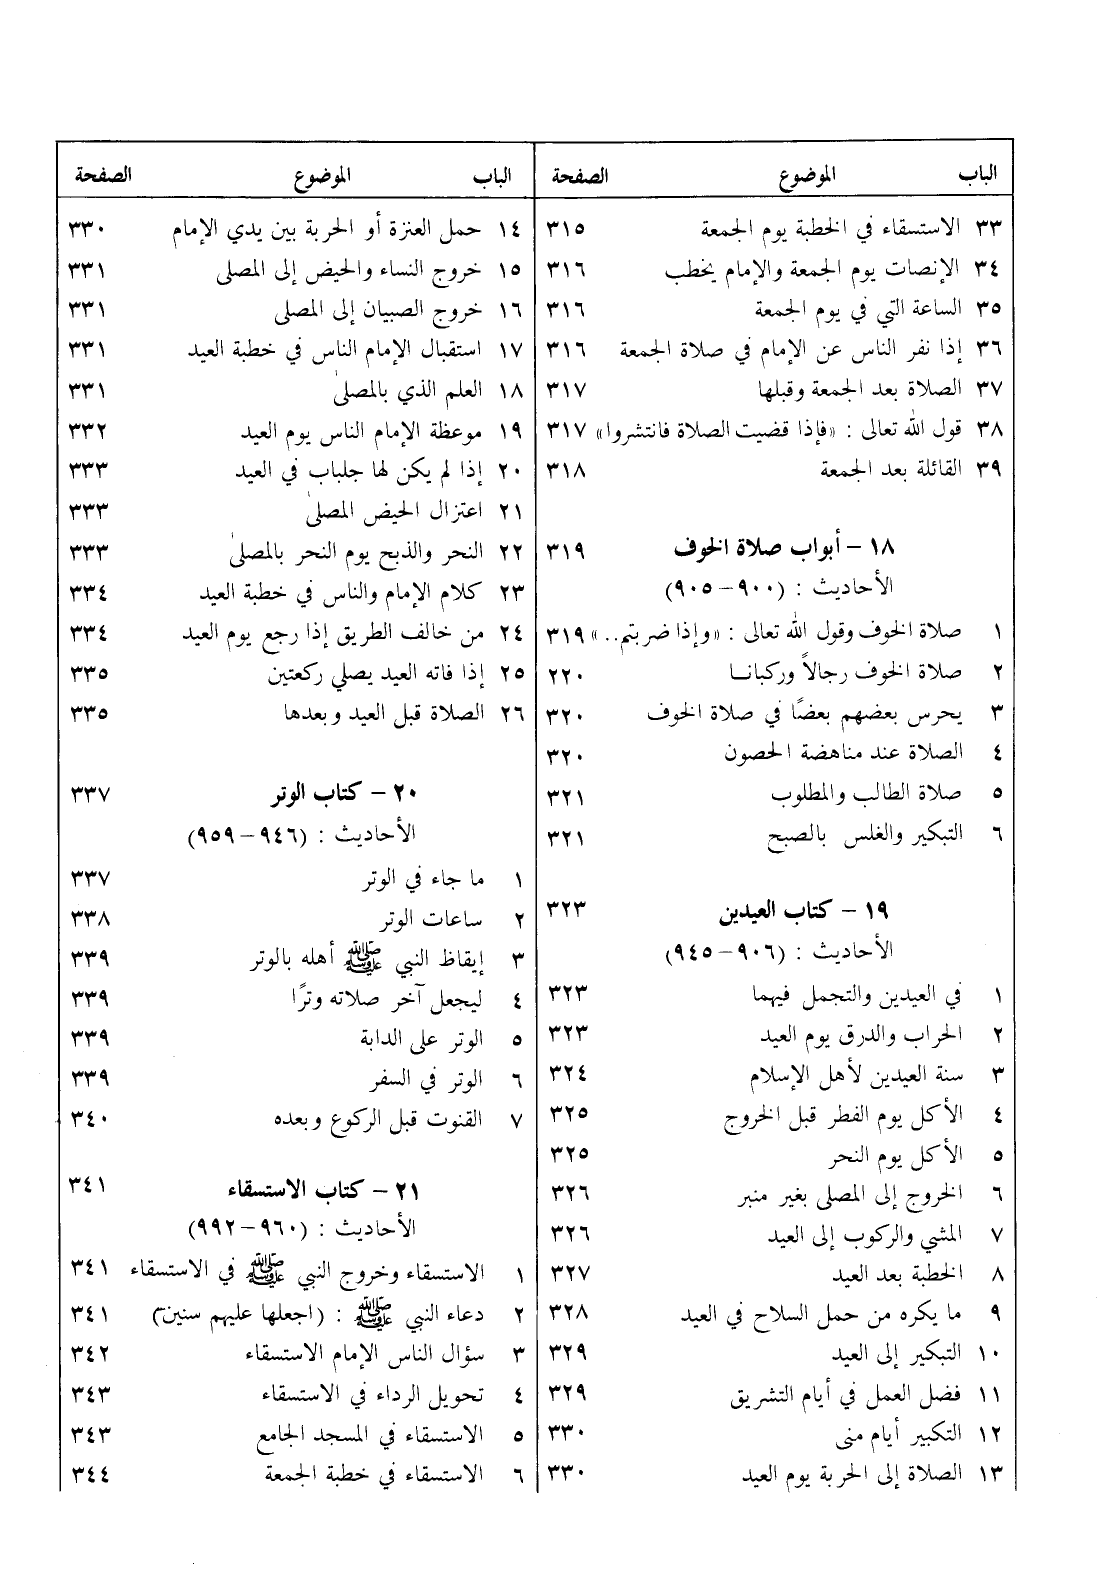 الباب الموضوع الصفحة
٣٣ الاستسقاء في الخطبة يوم الجمعة ٣١٥
٣٤ الإنصات يوم الجمعة والإمام يخطب ٣١٦
٣٥ الساعة التي في يوم الجمعة ٣١٦
٣٦ إذا نفر الناس عن الإمام في صلاة الجمعة ٣١٦
٣٧ الصلاة بعد الجمعة وقبلها ٣١٧
٣٨ قول الله تعالى : «فإذا قضيت الصلاة فانتشروا» ٣١٧
٣٩ القائلة بعد الجمعة ٣١٨
١٨ – أبواب صلاة الخوف ٣١٩
الأحاديث : (٩٠٠ – ٩٠٥)
١ صلاة الخوف وقول الله تعالى : «وإذا ضربتم..» ٣١٩
٢ صلاة الخوف رجالاً وركبانـا ٢٢٠
٣ يحرس بعضهم بعضًا في صلاة الخوف ٣٢٠
٤ الصلاة عند مناهضة الحصون ٣٢٠
٥ صلاة الطالب والمطلوب ٣٢١
٦ التبكير والغلس بالصبح ٣٢١
١٩ – كتاب العيدين ٣٢٣
الأحاديث : (٩٠٦ – ٩٤٥)
١ في العيدين والتجمل فيهما ٣٢٣
٢ الحراب والدرق يوم العيد ٣٢٣
٣ سنة العيدين لأهل الإسلام ٣٢٤
٤ الأكل يوم الفطر قبل الخروج ٣٢٥
٥ الأكل يوم النحر ٣٢٥
٦ الخروج إلى المصلى بغير منبر ٣٢٦
٧ المشي والركوب إلى العيد ٣٢٦
٨ الخطبة بعد العيد ٣٢٧
٩ ما يكره من حمل السلاح في العيد ٣٢٨
١٠ التبكير إلى العيد ٣٢٩
١١ فضل العمل في أيام التشريق ٣٢٩
١٢ التكبير أيام منى ٣٣٠
١٣ الصلاة إلى الحربة يوم العيد ٣٣٠
الباب الموضوع الصفحة
١٤ حمل العنزة أو الحربة بين يدي الإمام ٣٣٠
١٥ خروج النساء والحيض إلى المصلى ٣٣١
١٦ خروج الصبيان إلى المصلى ٣٣١
١٧ استقبال الإمام الناس في خطبة العيد ٣٣١
١٨ العلم الذي بالمصلىٰ ٣٣١
١٩ موعظة الإمام الناس يوم العيد ٣٣٢
٢٠ إذا لم يكن لها جلباب في العيد ٣٣٣
٢١ اعتزال الحيض المصلىٰ ٣٣٣
٢٢ النحر والذبح يوم النحر بالمصلىٰ ٣٣٣
٢٣ كلام الإمام والناس في خطبة العيد ٣٣٤
٢٤ من خالف الطريق إذا رجع يوم العيد ٣٣٤
٢٥ إذا فاته العيد يصلي ركعتين ٣٣٥
٢٦ الصلاة قبل العيد وبعدها ٣٣٥
٢٠ – كتاب الوتر ٣٣٧
الأحاديث : (٩٤٦ – ٩٥٩)
١ ما جاء في الوتر ٣٣٧
٢ ساعات الوتر ٣٣٨
٣ إيقاظ النبي ﷺ أهله بالوتر ٣٣٩
٤ ليجعل آخر صلاته وترًا ٣٣٩
٥ الوتر على الدابة ٣٣٩
٦ الوتر في السفر ٣٣٩
٧ القنوت قبل الركوع وبعده ٣٤٠
٢١ – كتاب الاستسقاء ٣٤١
الأحاديث : (٩٦٠ – ٩٩٢)
١ الاستسقاء وخروج النبي ﷺ في الاستسقاء ٣٤١
٢ دعاء النبي ﷺ : (اجعلها عليهم سنين) ٣٤١
٣ سؤال الناس الإمام الاستسقاء ٣٤٢
٤ تحويل الرداء في الاستسقاء ٣٤٣
٥ الاستسقاء في المسجد الجامع ٣٤٣
٦ الاستسقاء في خطبة الجمعة ٣٤٤